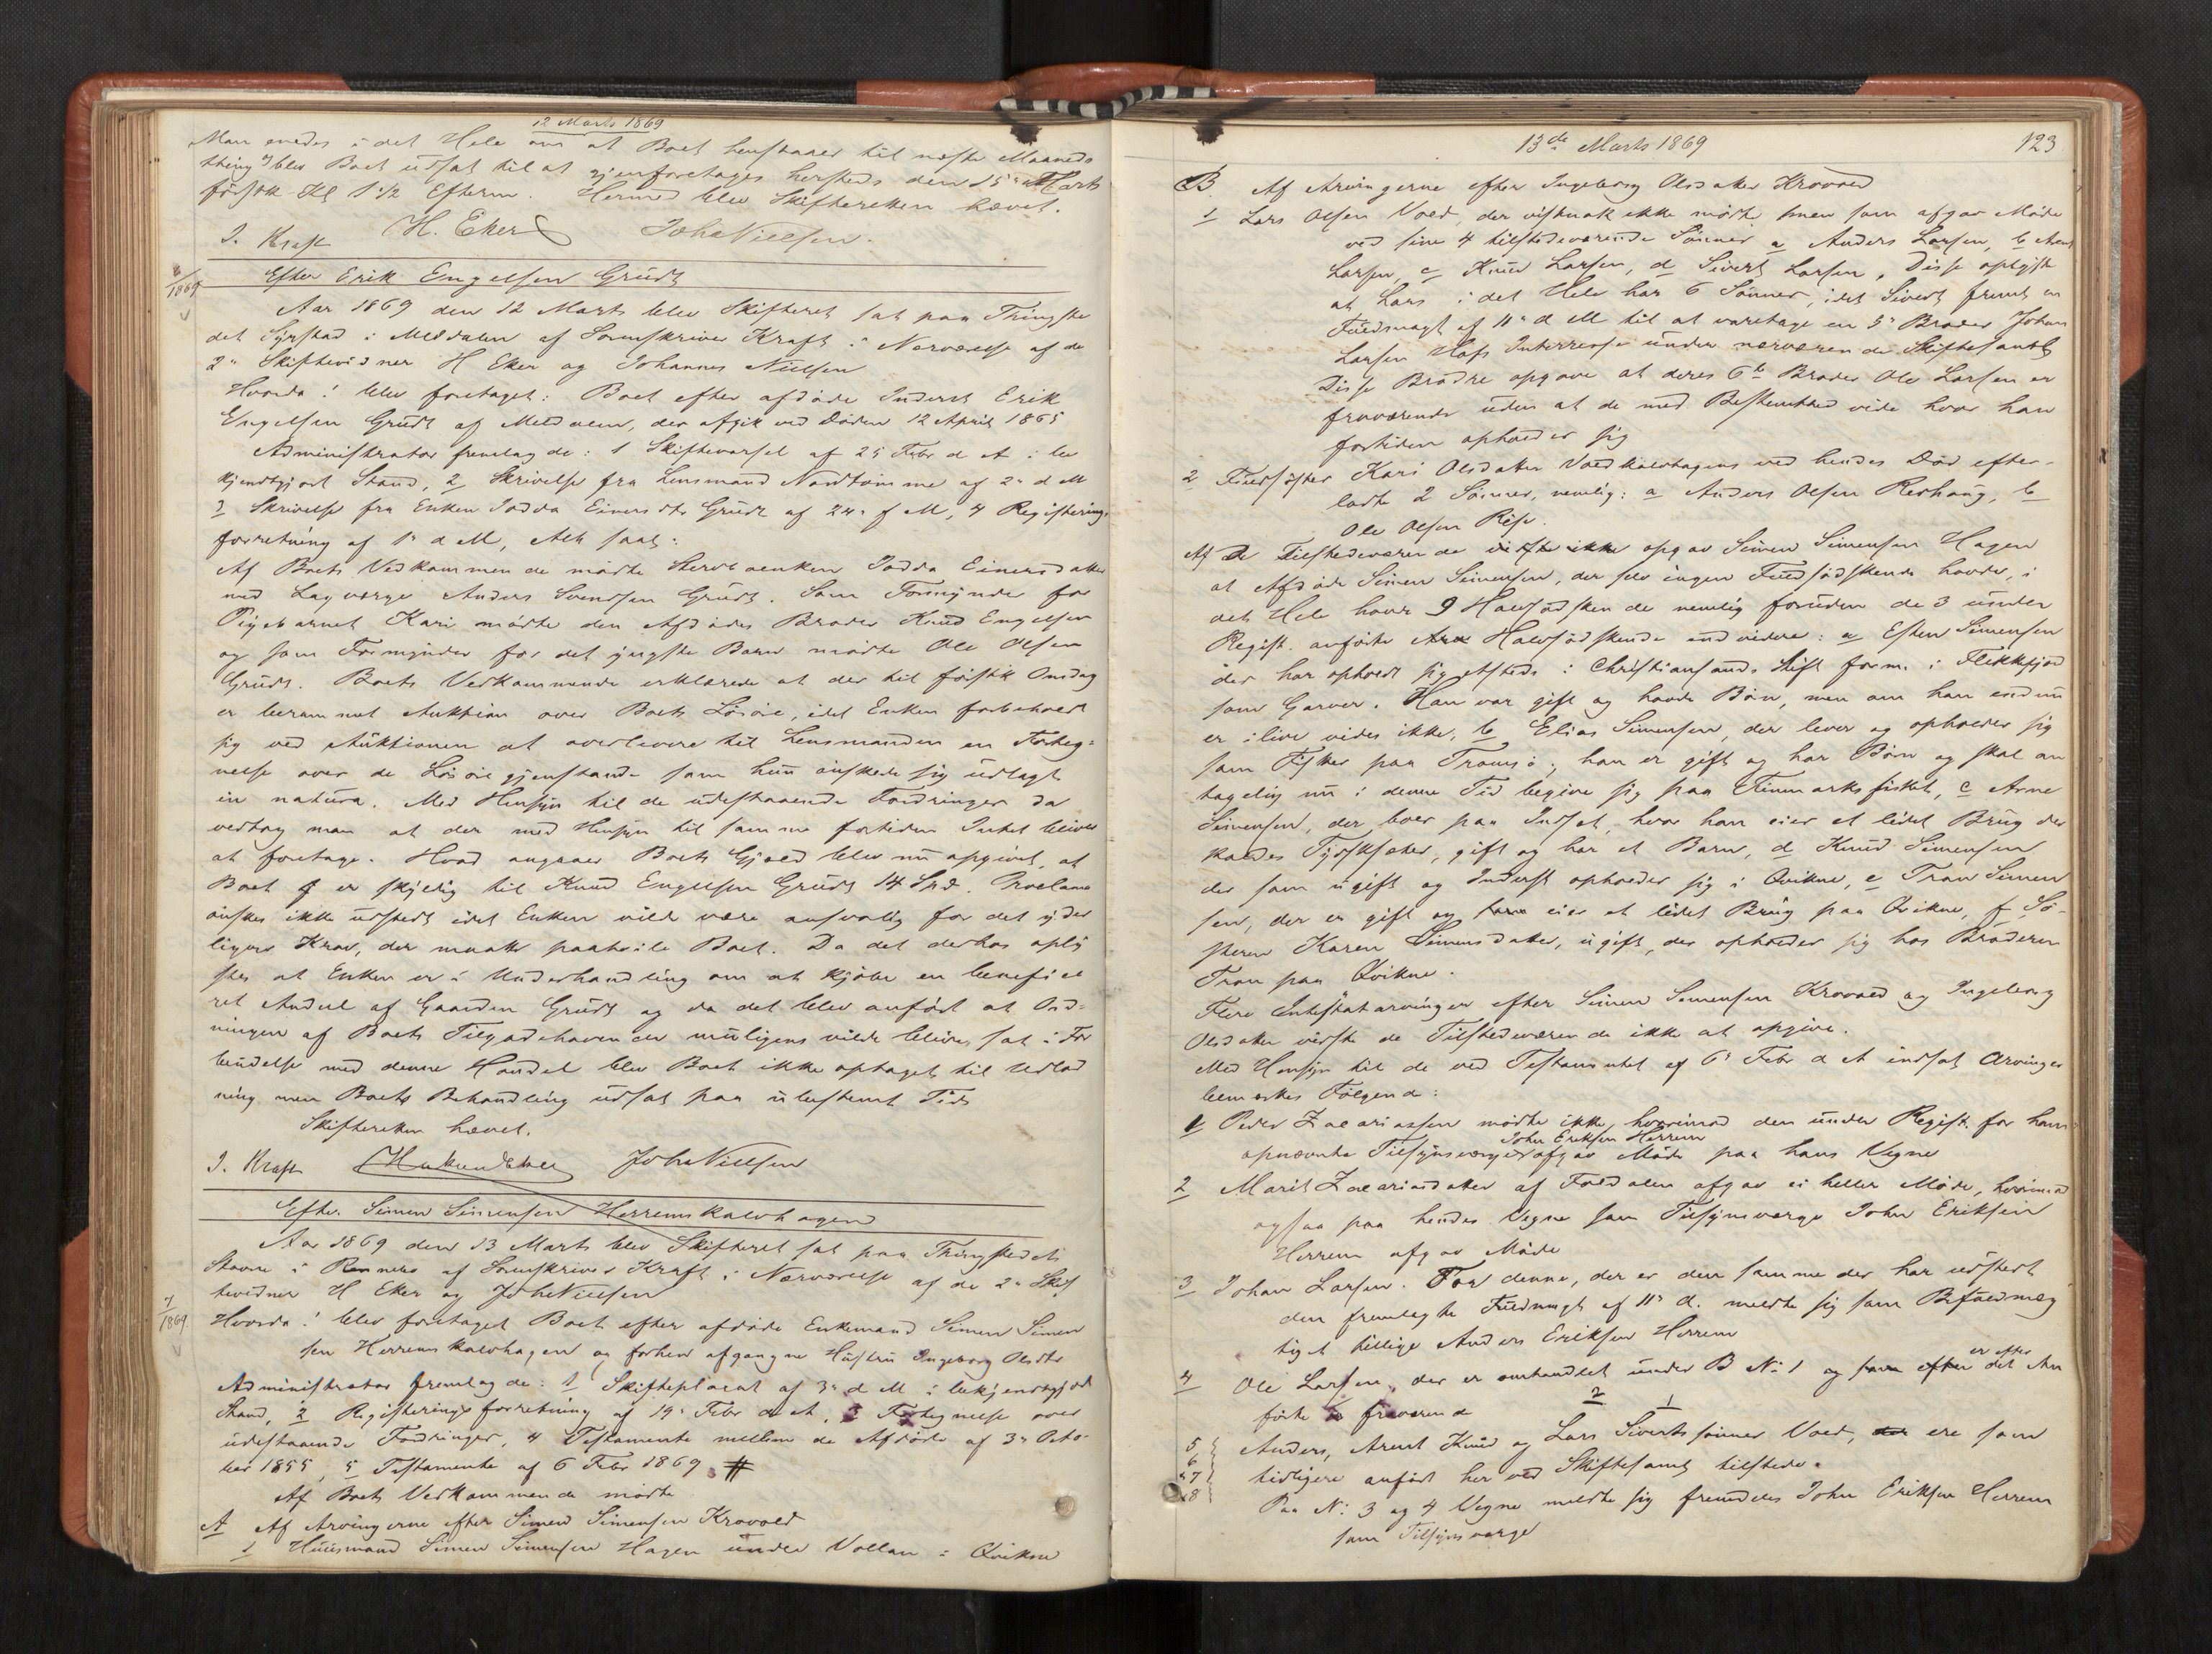 12 Marts 1869
Man enedes i det Hele om at Boet henstaaer til næste Maaneds
thing & blev Boet udsat til at gjenforetages hersteds den 15de Marts
førstk Kl 1 1/2 Efterm. Hermed blev Skifteretten hævet.
J. Kraft H. Eker Joh Nielsen.
6/1869
Efter Erik Engelsen Grudt
Aar 1869 den 12 Marts blev Skifteret sat paa Thingste
det Syrstad i Meldalen af Sorenskriver Kraft i Nærværelse af de
2de Skiftevidner H Eker og Johannes Nielsen
Hvorda! blev foretaget: Boet efter afdøde Inderst Erik
Engelsen Grudt af Meldalen, der afgik ved Døden 12 April 1865
Administrator fremlagde: 1 Skiftevarsel af 25 Febr d A i be
kjendtgjort Stand, 2 Skrivelse fra Lensmand Nordtømme af 2de d M
3 Skrivelse fra Enken Jødda Einersdtr Grudt af 24de f M, 4 Registrerings
forretning af 1ste d M, Alt saal:
Af Boets Vedkommende mødte Stervboenken Jødda Einersdatter
med Lagværge Anders Svendsen Grudt. Som Formynder for
Pigebarnet Kari mødte den Afdødes Broder Knud Engelsen
og som Formynder for det yngste Barn mødte Ole Olsen
Grudt. Boets Vedkommende erklærede at der til førstk Onsdag
er berammet Auktion over Boets Løsøre, idet Enken forbeholdt
sig ved Auktionen at overlevere til Lensmanden en Forteg-
nelse over de Løsøregjenstande som hun ønskede sig udlagt
in natura. Med Hensyn til de udestaaende Fordringer da
vedtog man at der med Hensyn til samme fortiden Intet bliver
at foretage. Hvad angaaer Boets Gjæld blev nu opgivet, at
Boet er skyldig til Knud Engelsen Grudt 14 Spd. Proclama
ønskes ikke udstedt idet Enken vilde være ansvarlig for det yder
ligere Krav, der maatte paahvile Boet. Da det derhos oply
stes at Enken er i Underhandling om at kjøbe en benefice
ret Andeel af Gaarden Grudt og da det blev anført at Ord-
ningen af Boets Tilgodehavender muligens vilde blive sat i For
bindelse med denne Handel blev Boet ikke optaget til Udlod
ning men Boets Behandling udsat paa ubestemt Tid
Skifteretten hævet.
J. Kraft Haken Eker Joh Nielsen
Efter Simen Simensen Herremskalvhagen
Aar 1869 den 13 Marts blev Skifteret sat paa Thingstedet
Stavne i Rennebo af Sorenskriver Kraft i Nærværelse af de 2de Skif
tevidner H Eker og Joh Nielsen
7/1869
Hvorda! blev foretaget Boet efter afdøde Enkemand Simen Simen
sen Herremskalvhagen og forhen afgangne Hustru Ingeborg Olsdtr
Administrator fremlagde: 1 Skifteplacat af 3de d M i bekjendtgjort
Stand, 2 Registreringsforretning af 19de Febr d A, 3 Fortegnelse over
udestaaende Fordringer, 4 Testamente mellem de Afdøde af 3de Octo-
ber 1855, 5 Testamente af 6 Febr 1869
Af Boets Vedkommende mødte
A Af Arvingerne efter Simen Simensen Krovold
1 Huusmand Simen Simensen Hagen under Vollan i Qvikne
13de Marts 1869
123
B Af Arvingerne efter Ingeborg Olsdatter Krovold
1 Lars Olsen Vold, der vistnok ikke mødte men som afgav Møde
ved sine 4 tilstedeværende Sønner a Anders Larsen, b Arnt
Larsen, c Knud Larsen, d Sivert Larsen. Disse oplyste
at Lars i det Hele har 6 Sønner, idet Sivert fremt en
Fuldmagt af 11te d M til at varetage en 5te Broder Johan
Larsen Hofs Interresse under nærværende Skiftesamling
Disse Brødre opgave at deres 6te Broder Ole Larsen er
fraværende uden at de med Bestemthed vide hvor han
fortiden opholder sig
2 Fuldsøster Kari Olsdatter Voldkalvhagens ved hendes Død efter-
ladte 2 Sønner, nemlig: a Anders Olsen Reshaug, b
Ole Olsen Rise.
Af De Tilstedeværende opgav Simen Simensen Hagen
at Afdøde Simen Simensen, der selv ingen Fuldsødskende havde, i
det Hele havr 9 Halvsødskende nemlig foruden de 3 under
Regist. anførte Halvsødskende endvidere: a Esten Simensen
der har opholdt sig etsteds i Christiansands Stift form. i Flekkefjord
som Garver. Han var gift og havde Børn, men om han endnu
er ilive vides ikke, b Elias Simensen, der lever og opholder sig
som Fisker paa Tromsø; han er gift og har Børn og skal an
tagelig nu i denne Tid begive sig paa Finmarksfisket, c Arne
Simensen, der boer paa Indset, hvor han eier et lidet Brug der
kaldes Tyskflaten, gift og har et Barn, d Knud Simensen
der som ugift og Inderst opholder sig i Qvikne, e Tron Simen
sen, der er gift og eier et lidet Brug paa Qvikne, f Sø-
steren Karen Simensdatter, ugift, der opholder sig hos Broderen
Tron paa Qvikne.
Flere Intestatarvinger efter Simen Simensen Krovold og Ingeborg
Olsdatter vidste de Tilstedeværende ikke at opgive.
Med Hensyn til de ved Testamentet af 6te Febr d A indsat Arvinger
bemærkes Følgende:
1 Peder Zacariassen mødte ikke, hvorimod den under Regist. for ham
John Eriksen Herrem
opnævnte Tilsynsværge afgav Møde paa hans Vegne
2 Marit Zacariasdatter af Foldalen afgav ei heller Møde, hvorimod
ogsaa paa hendes Vegne som Tilsynsværge John Eriksen
Herrem afgav Møde
3 Johan Larsen. For denne, der er den samme der har udstedt
den fremlagte Fuldmagt af 11te d. meldte sig som Befuldmæg
tiget tillige Anders Eriksen Herrem
4 Ole Larsen, der er omhandlet under B No 1 og er efter det An
førte fraværende
5 6 7 8 Anders, Arnt Knud og Lars Sivertsønner Vold, ere som
tidligere anført her ved Skiftesamling tilstede.
Paa No 3 og 4 Vegne meldte sig fremdeles John Eriksen Herrem
som Tilsynsværge